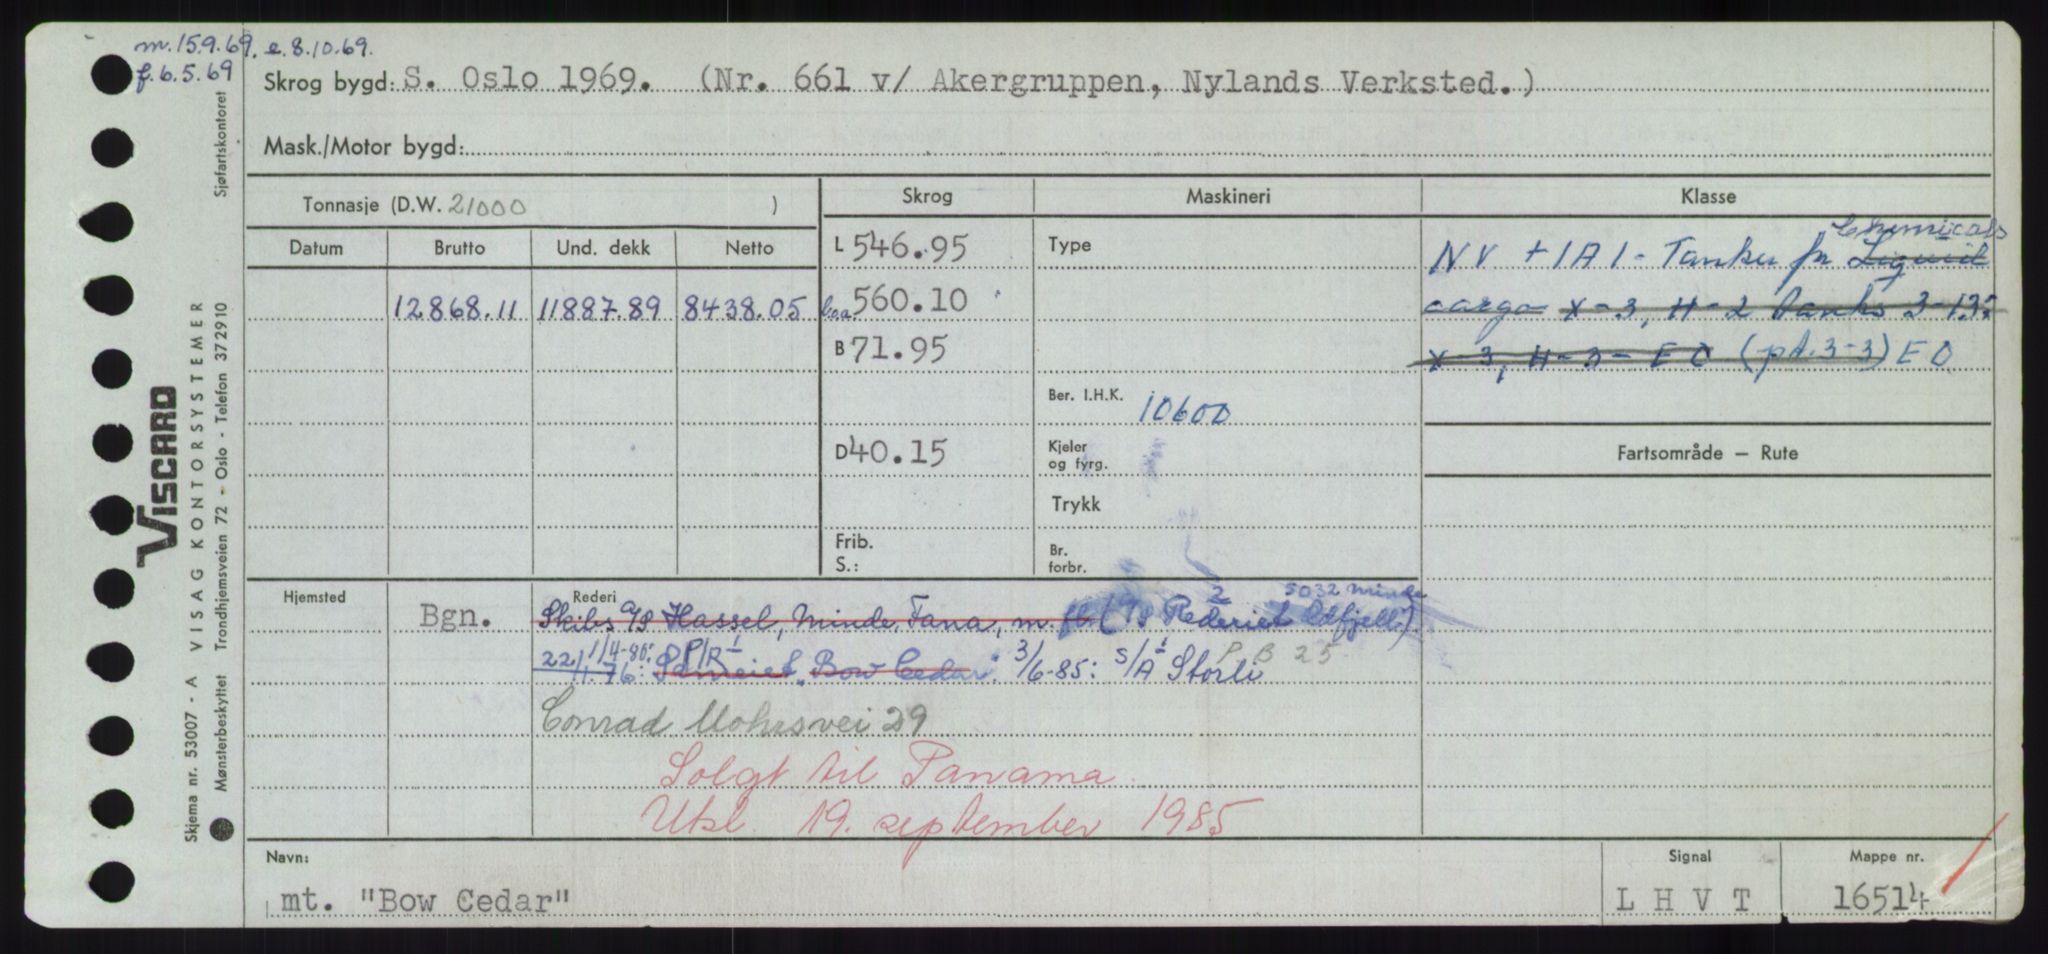 m. 15.9.69. e. 8.10.69.
f. 6.5.69
Skrog bygd: S. Oslo 1969. (Nr. 661 v/ Akergruppen, Nylands Verksted.)
Mask./Motor bygd:
Tonnasje (D.W. 21000 )
Skrog
Maskineri
Klasse
Datum
Brutto
Und. dekk
Netto
12868.11
11887.89
8438.05
L 546.95
boa. 560.10
B 71.95
D 40.15
Frib.
S.:
Type
Ber. I.H.K. 10600
Kjeler
og fyrg.
Trykk
Br.
forbr.
Chemicals
NV +1A1 - Tanker for Liquid
cargo X-3, H-2 tanks 3-13:
X-3, H-3- EO (pt. 3-3) EO
Fartsområde — Rute
Hjemsted
Rederi
Bgn.
2 5032 Minde
Skibs A/S Hassel, Minde, Fana, m. fl. (A/S Rederiet Odfjell).
1/4-80: P/R P B 25
22/1.76: Partrederiet Bow Cedar. 3/6-85: S/A Storli
Conrad Mohrsvei 29
Solgt til Panama.
Utsl. 19. september 1985
Navn:
mt. "Bow Cedar"
Signal
L H V T
Mappe nr.
16514
Sjøfartskontoret
VISCARD
A VISAG KONTORSYSTEMER
Skjema nr. 53007 -
Mønsterbeskyttet Trondhjemsveien 72 - Oslo - Telefon 372910